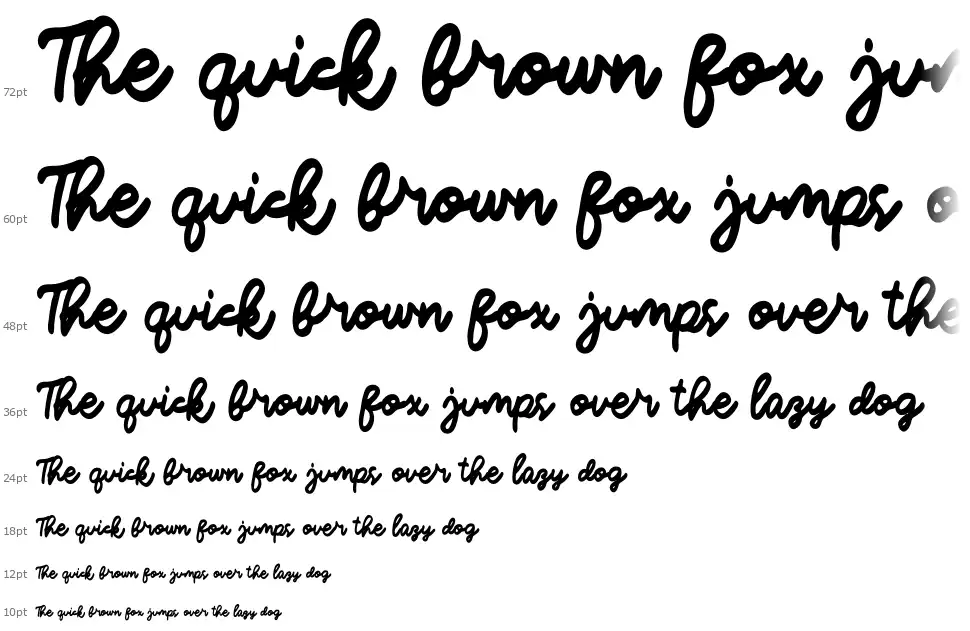 72pt The quick brown fox jum
60pt The quick brown fox jumps o
48pt The quick brown fox jumps over the
36pt The quick brown fox jumps over the lazy dog
24pt The quick brown fox jumps over the lazy dog
18pt The quick brown fox jumps over the lazy dog
12pt The quick brown fox jumps over the lazy dog
10pt The quick brown fox jumps over the lazy dog